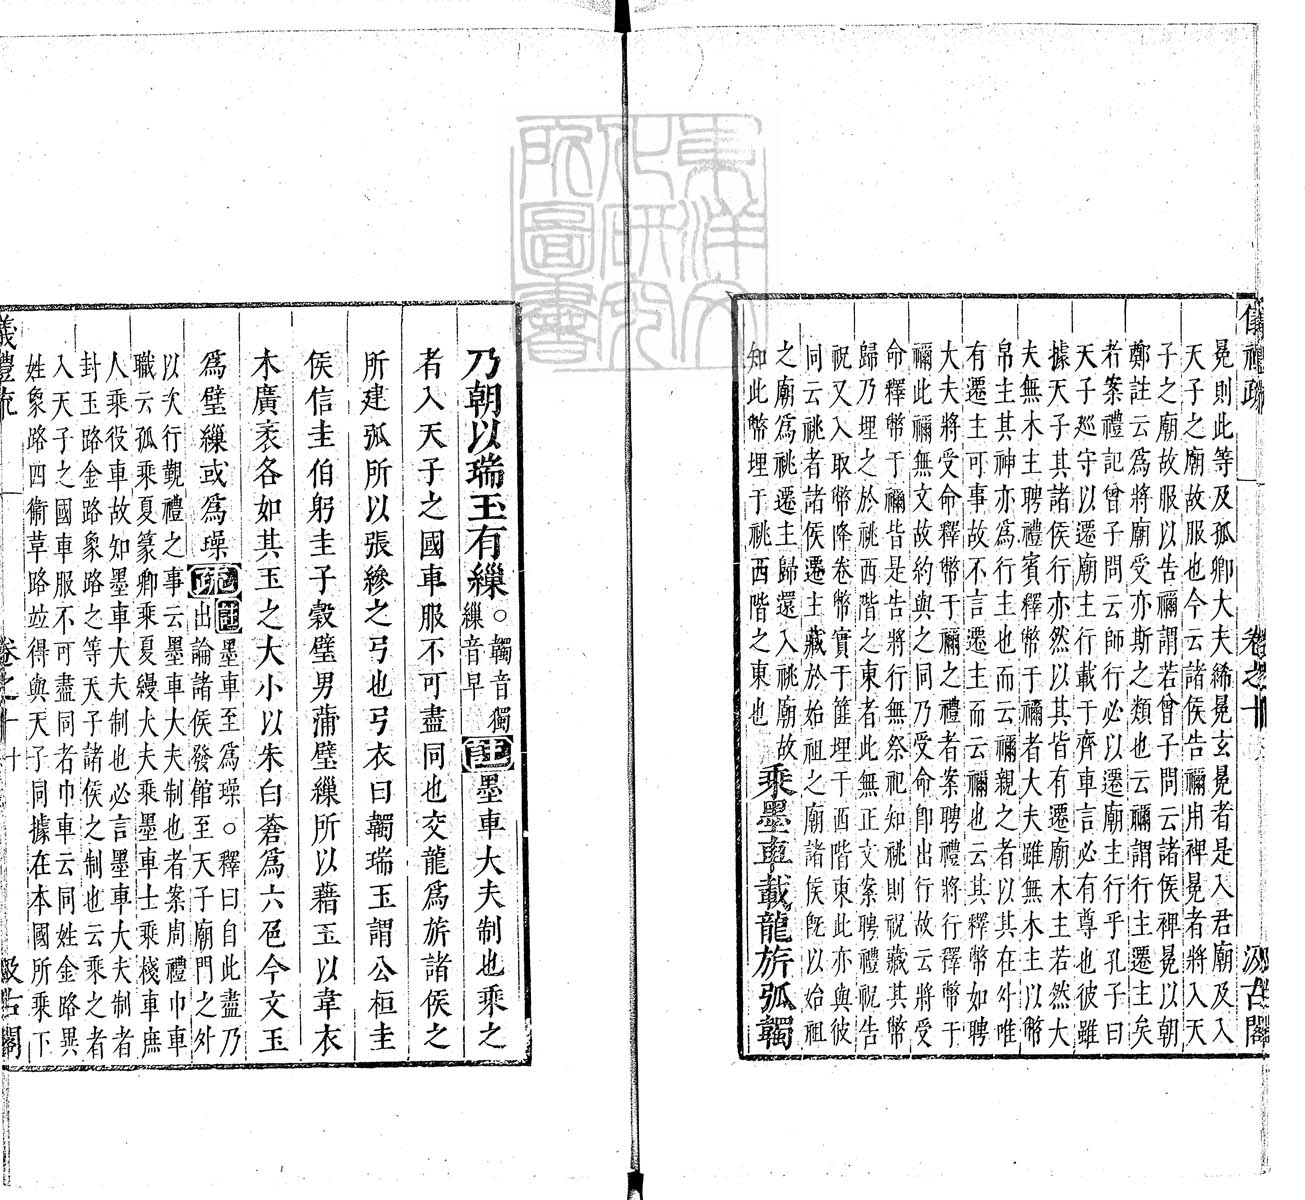 儀禮疏
卷之十
汲古閣
冕則此等及孤卿大夫稀冕玄冕者是入君廟及入
天子之廟故服也今云諸侯告禰用裨冕者將入天
子之廟故服以告禰謂若曾子問云諸侯裨冕以朝
鄭註云爲將廟受亦斯之類也云禰謂行主遷主矣
者案禮記曾子問云師行必以遷廟主行乎孔子曰
天子廵守以遷廟主行載于齊車言必有尊也彼雖
據天子其諸侯行亦然以其皆有遷廟木主若然大
夫無木主聘禮賓釋幣于禰者大夫雖無木主以幣
帛主其神亦爲行主也而云禰親之者以其在外唯
有遷主可事故不言遷主而云禰也云其釋幣如聘
大夫將受命釋幣于禰之禮者案聘禮將行釋幣于
禰此禰無文故約與之同乃受命卽出行故云將受
命釋幣于禰皆是告將行無祭祀知祧則祝藏其幣
歸乃埋之於祧西階之東者此無正文案聘禮祝告
祝又入取幣降卷幣實于篚埋于西階東此亦與彼
同云祧者諸侯遷主藏於始祖之廟諸侯旣以始祖
之廟爲祧遷主歸還入祧廟故
知此幣埋于祧西階之東也
乘墨車載龍旂弧韣
乃朝以瑞玉有繅
○韣音獨
繅音早
註墨車大夫制也乘之
者入天子之國車服不可盡同也交龍爲旂諸侯之
所建弧所以張縿之弓也弓衣曰韣瑞玉謂公桓圭
侯信圭伯躬圭子穀璧男蒲璧繅所以藉玉以韋衣
木廣袤各如其玉之大小以朱白蒼爲六色今文玉
爲璧繅或爲璪
疏註墨車至爲璪○釋曰自此盡乃
出論諸侯發館至天子廟門之外
以次行覲禮之事云墨車大夫制也者案周禮巾車
職云孤乘夏篆卿乘夏縵大夫乘墨車士乘棧車庶
人乘役車故知墨車大夫制也必言墨車大夫制者
封玉路金路象路之等天子諸侯之制也云乘之者
入天子之國車服不可盡同者巾車云同姓金路異
姓象路四衞草路竝得與天子同據在本國所乘下
儀禮疏
卷之十
十
汲古閣